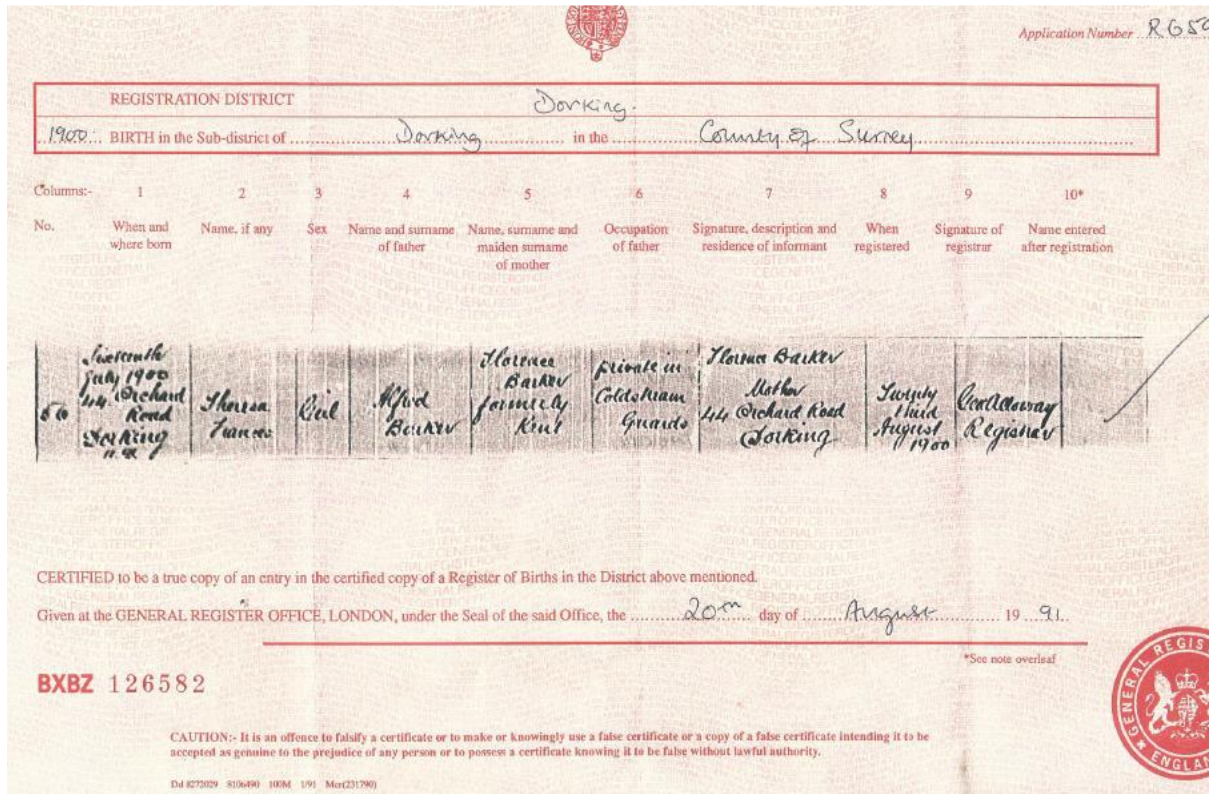 Application Number R G 50
REGISTRATION DISTRICT Dorking.
1900 BIRTH in the Sub-district of Dorking in the County of Surrey
Columns:- 1 2 3 4 5 6 7 8 9 10*
No. When and where born Name, if any Sex Name and surname of father Name, surname and maiden surname of mother Occupation of father Signature, description and residence of informant When registered Signature of registrar Name entered after registration
56 Sixteenth July 1900 44 Orchard Road Dorking Theresa Frances Girl Alfred Barker Florence Barker formerly Kent private in Coldstream Guards Florence Barker Mother 44 Orchard Road Dorking Twenty third August 1900 Registrar
CERTIFIED to be a true copy of an entry in the certified copy of a Register of Births in the District above mentioned.
Given at the GENERAL REGISTER OFFICE, LONDON, under the Seal of the said Office, the 20th day of August 19 91.
*See note overleaf
BXBZ 126582
CAUTION:- It is an offence to falsify a certificate or to make or knowingly use a false certificate or a copy of a false certificate intending it to be
accepted as genuine to the prejudice of any person or to possess a certificate knowing it to be false without lawful authority.
Dd 8272029 8106490 100M 1/91 Mcr(231790)
GENERAL REGIS
ENGLAN